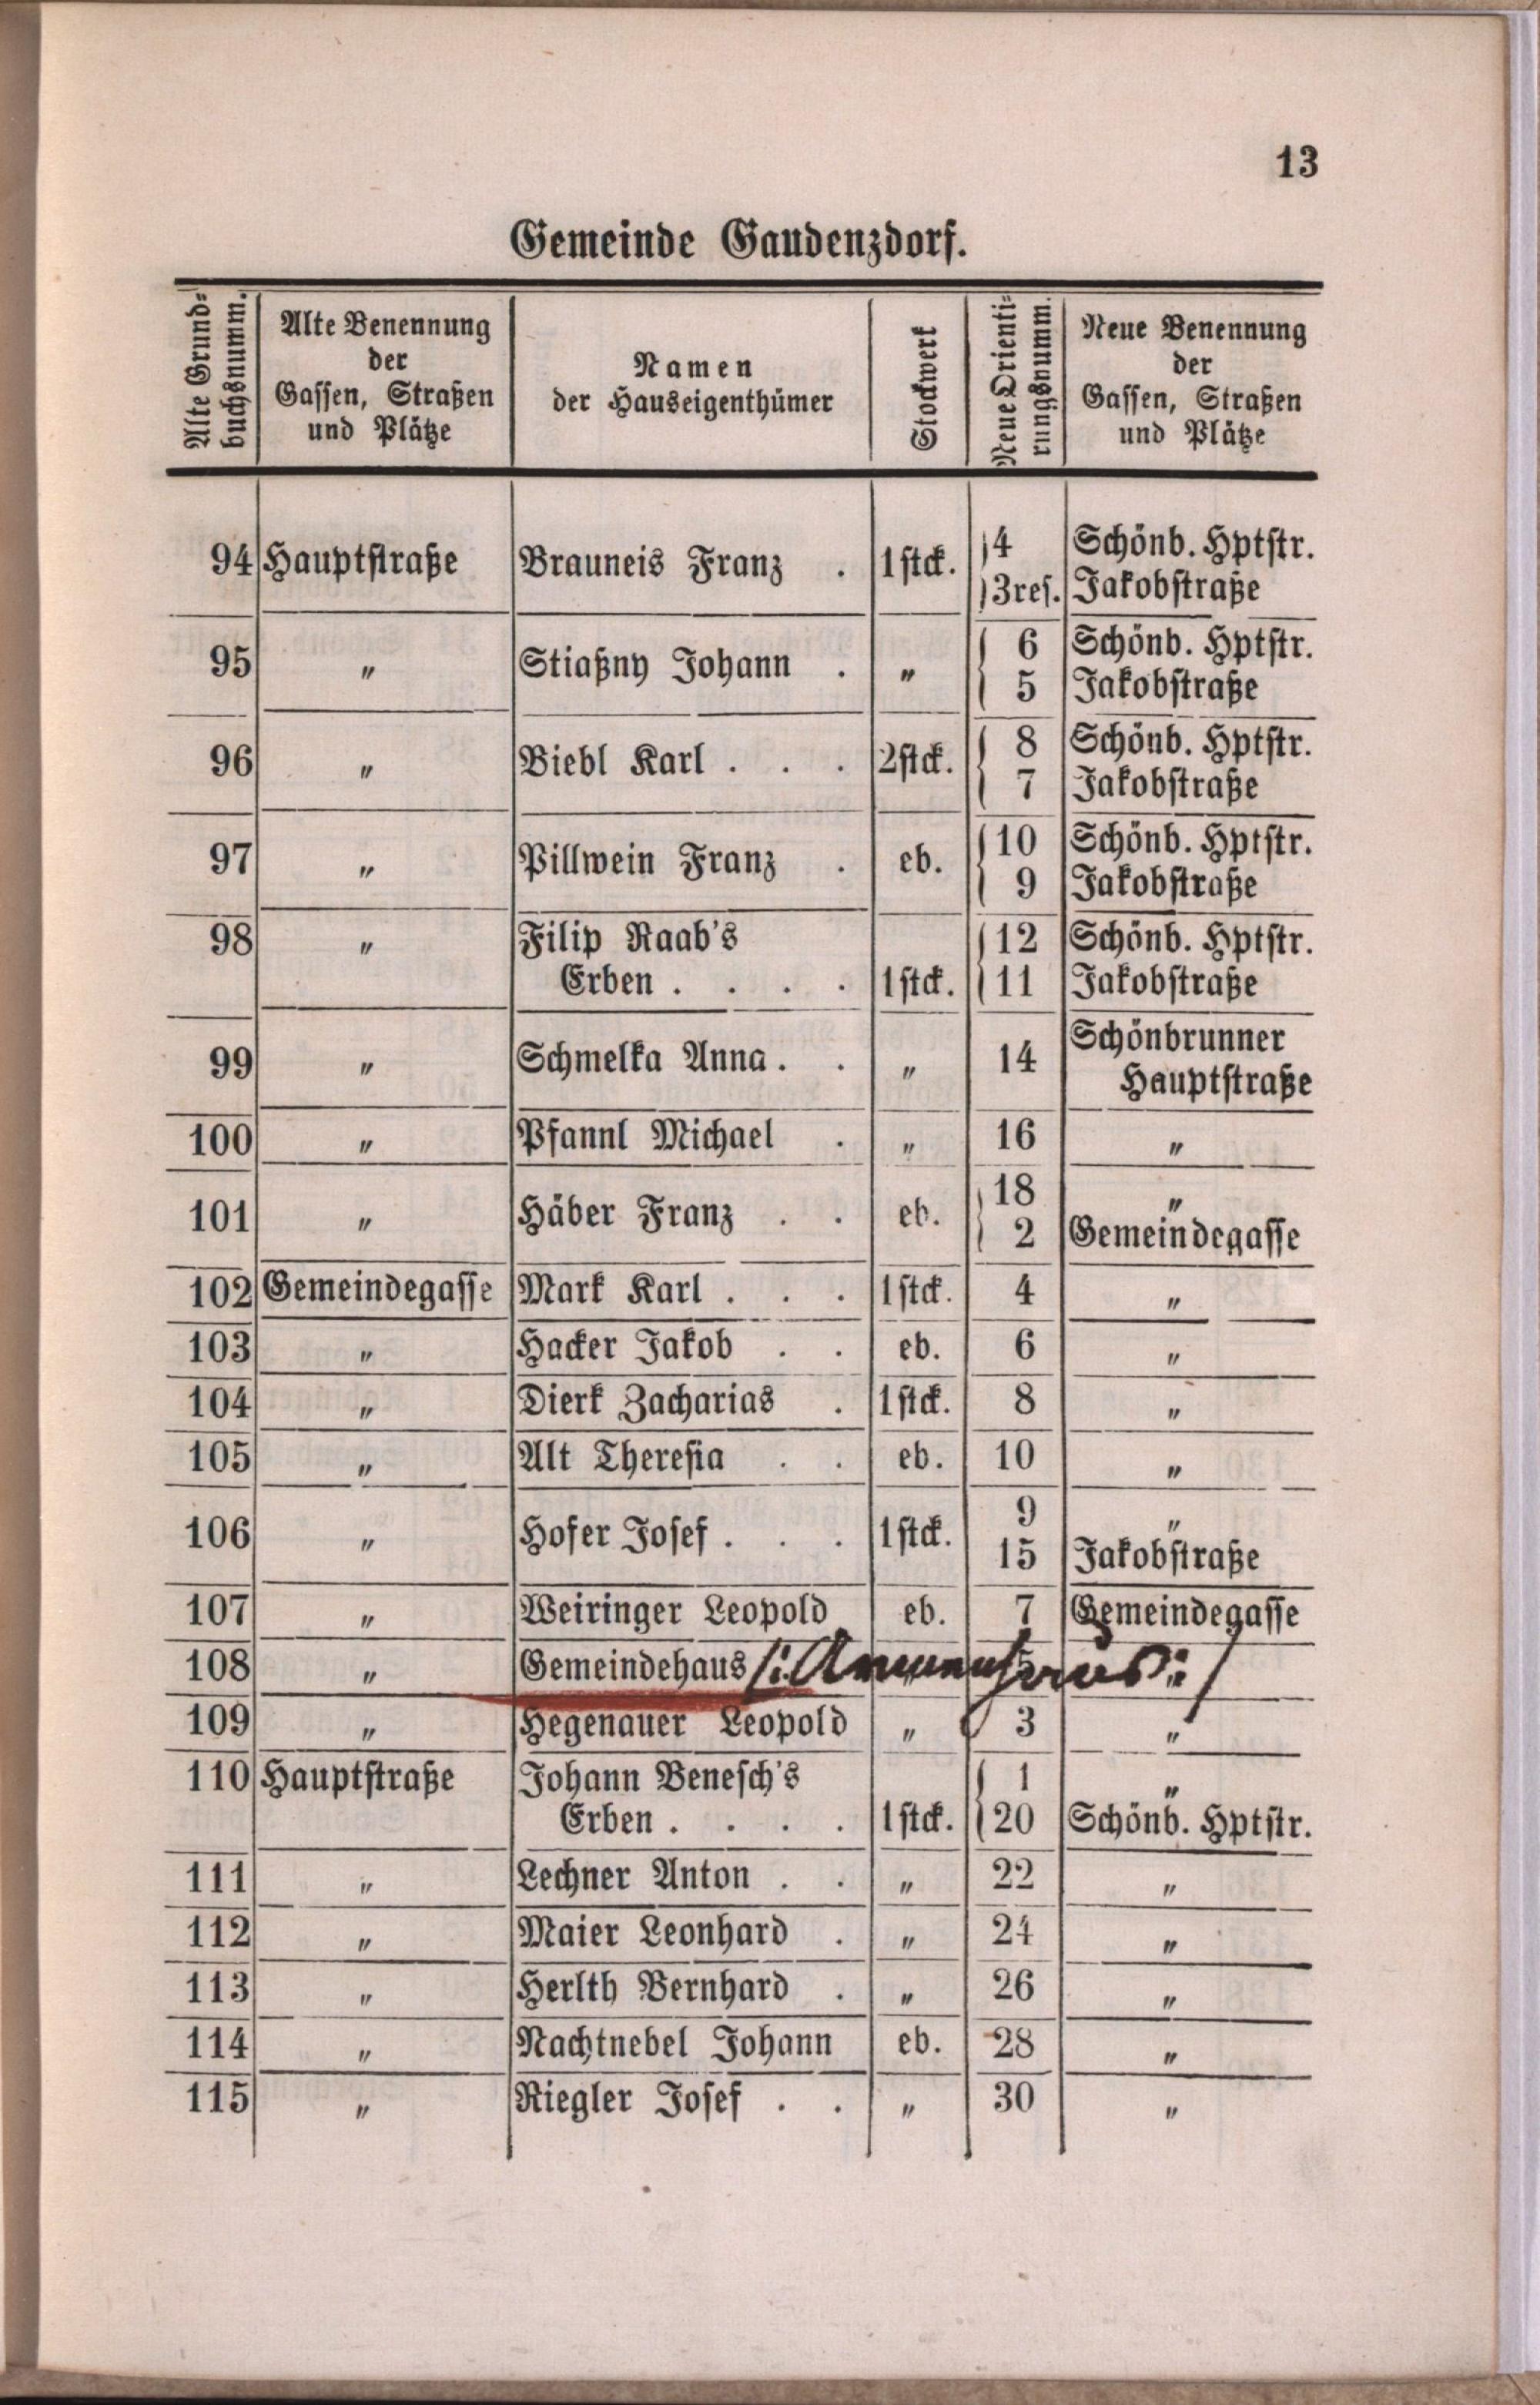 13
Gemeinde Gaudenzdorf.
Alte Grund-
buchsnumm.
Alte Benennung
der
Gassen, Straßen
und Plätze
Namen
der Hauseigenthümer
Stockwerk
Neue Orienti-
rungsnumm.
Neue Benennung
der
Gassen, Straßen
und Plätze
94 Hauptstraße Brauneis Franz . 1stck. 4 Schönb. Hptstr.
3res. Jakobstraße
95 " Stiaßny Johann . " 6 Schönb. Hptstr.
5 Jakobstraße
96 " Biebl Karl . . . 2stck. 8 Schönb. Hptstr.
7 Jakobstraße
97 " Pillwein Franz . eb. 10 Schönb. Hptstr.
9 Jakobstraße
98 " Filip Raab's 12 Schönb. Hptstr.
Erben . . . . 1stck. 11 Jakobstraße
99 " Schmelka Anna . . " 14 Schönbrunner
Hauptstraße
100 " Pfannl Michael . " 16 "
101 " Häber Franz . . eb. 18 "
2 Gemeindegasse
102 Gemeindegasse Mark Karl . . . 1stck. 4 "
103 " Hacker Jakob . . eb. 6 "
104 " Dierk Zacharias . 1stck. 8 "
105 " Alt Theresia . . eb. 10 "
106 " Hofer Josef . . . 1stck. 9 "
15 Jakobstraße
107 " Weiringer Leopold eb. 7 Gemeindegasse
108 " Gemeindehaus /: Armenhaus :/ " 5 "
109 " Hegenauer Leopold " 3 "
110 Hauptstraße Johann Benesch's 1 "
Erben . . . . 1stck. 20 Schönb. Hptstr.
111 " Lechner Anton . . " 22 "
112 " Maier Leonhard . " 24 "
113 " Herlth Bernhard . " 26 "
114 " Nachtnebel Johann eb. 28 "
115 " Riegler Josef . . " 30 "